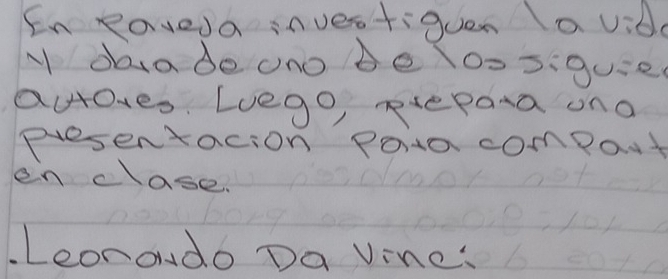 En Pareja investiguen la vida
y obra de uno de los siguie
autores. Luego, prepara una
presentacion para compart
en clase.
.Leonardo Da Vinci